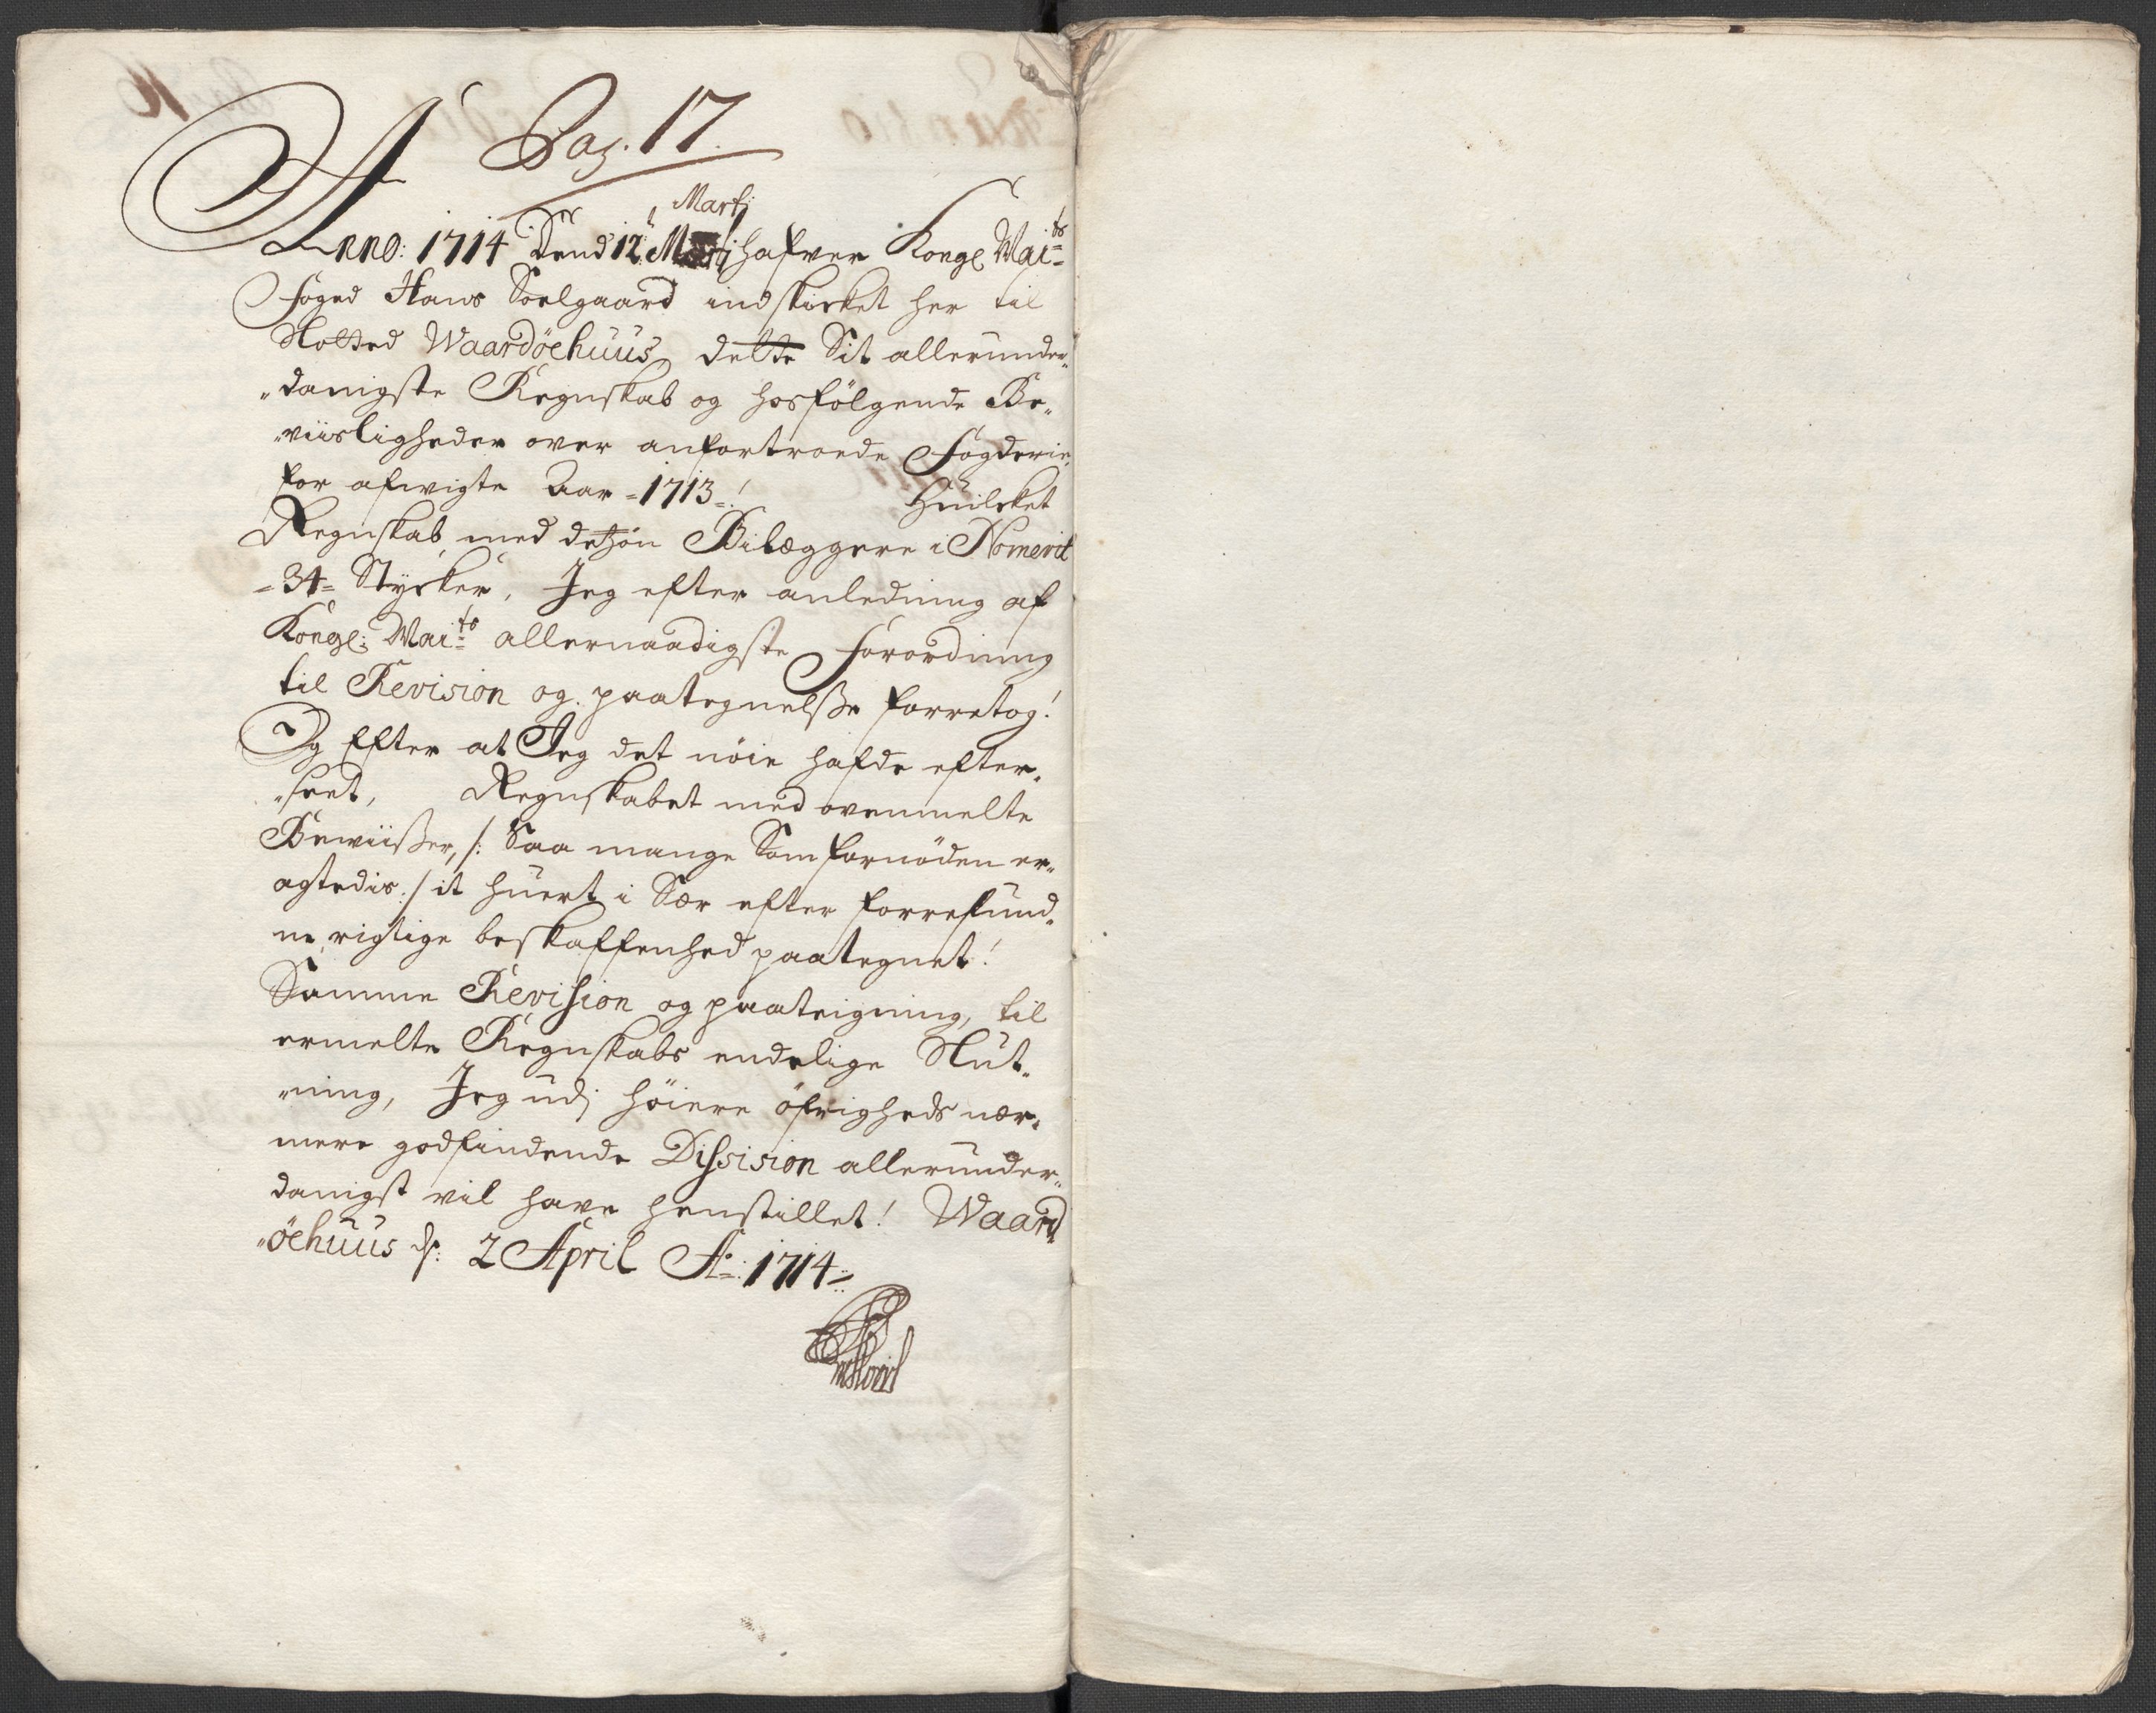 Pag. 17.
Martj
Anno: 1714 Dend 12 Martj hafver Kongl Mai:ts
Foged Hans Soelgaard indskicket her til
Slotted Waardøehuus, dette Sit allerunder-
danigste Regnskab og hosfölgende Be-
viisligheder over anfortroede Fogderie,
for afvigte Aar =1713=! Huilcket
Regnskab med detz ön Bilæggere i Nomerit
=34= Stycker, Jeg efter anledning af
Kongl: Mai:ts allernaadigste Forordning
til Revision og paategnelsse forretog!
Og Efter at Jeg det nöie hafde efter-
seet, Regnskabet med ovenmelte
Bewiisser, /: Saa mange Som fornöden er-
agtedis :/ it huert i Sær efter forrefund-
ne, rigtige beskaffenhed paategnet!
Samme Revision og paateigning, til
ermelte Regnskabs endelige Slut-
ning, Jeg udj höiere öfrigheds nær-
mere godfindende Dissision allerunder-
danigst vil have henstillet! Waard-
öehuus d: 2 April Ao: 1714